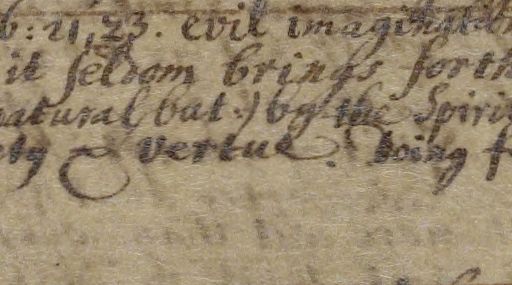 b: 11, 23. evil imaginatio
it seldom brings forth
natural (but.) by the Spirit
ety & vertue. doing f